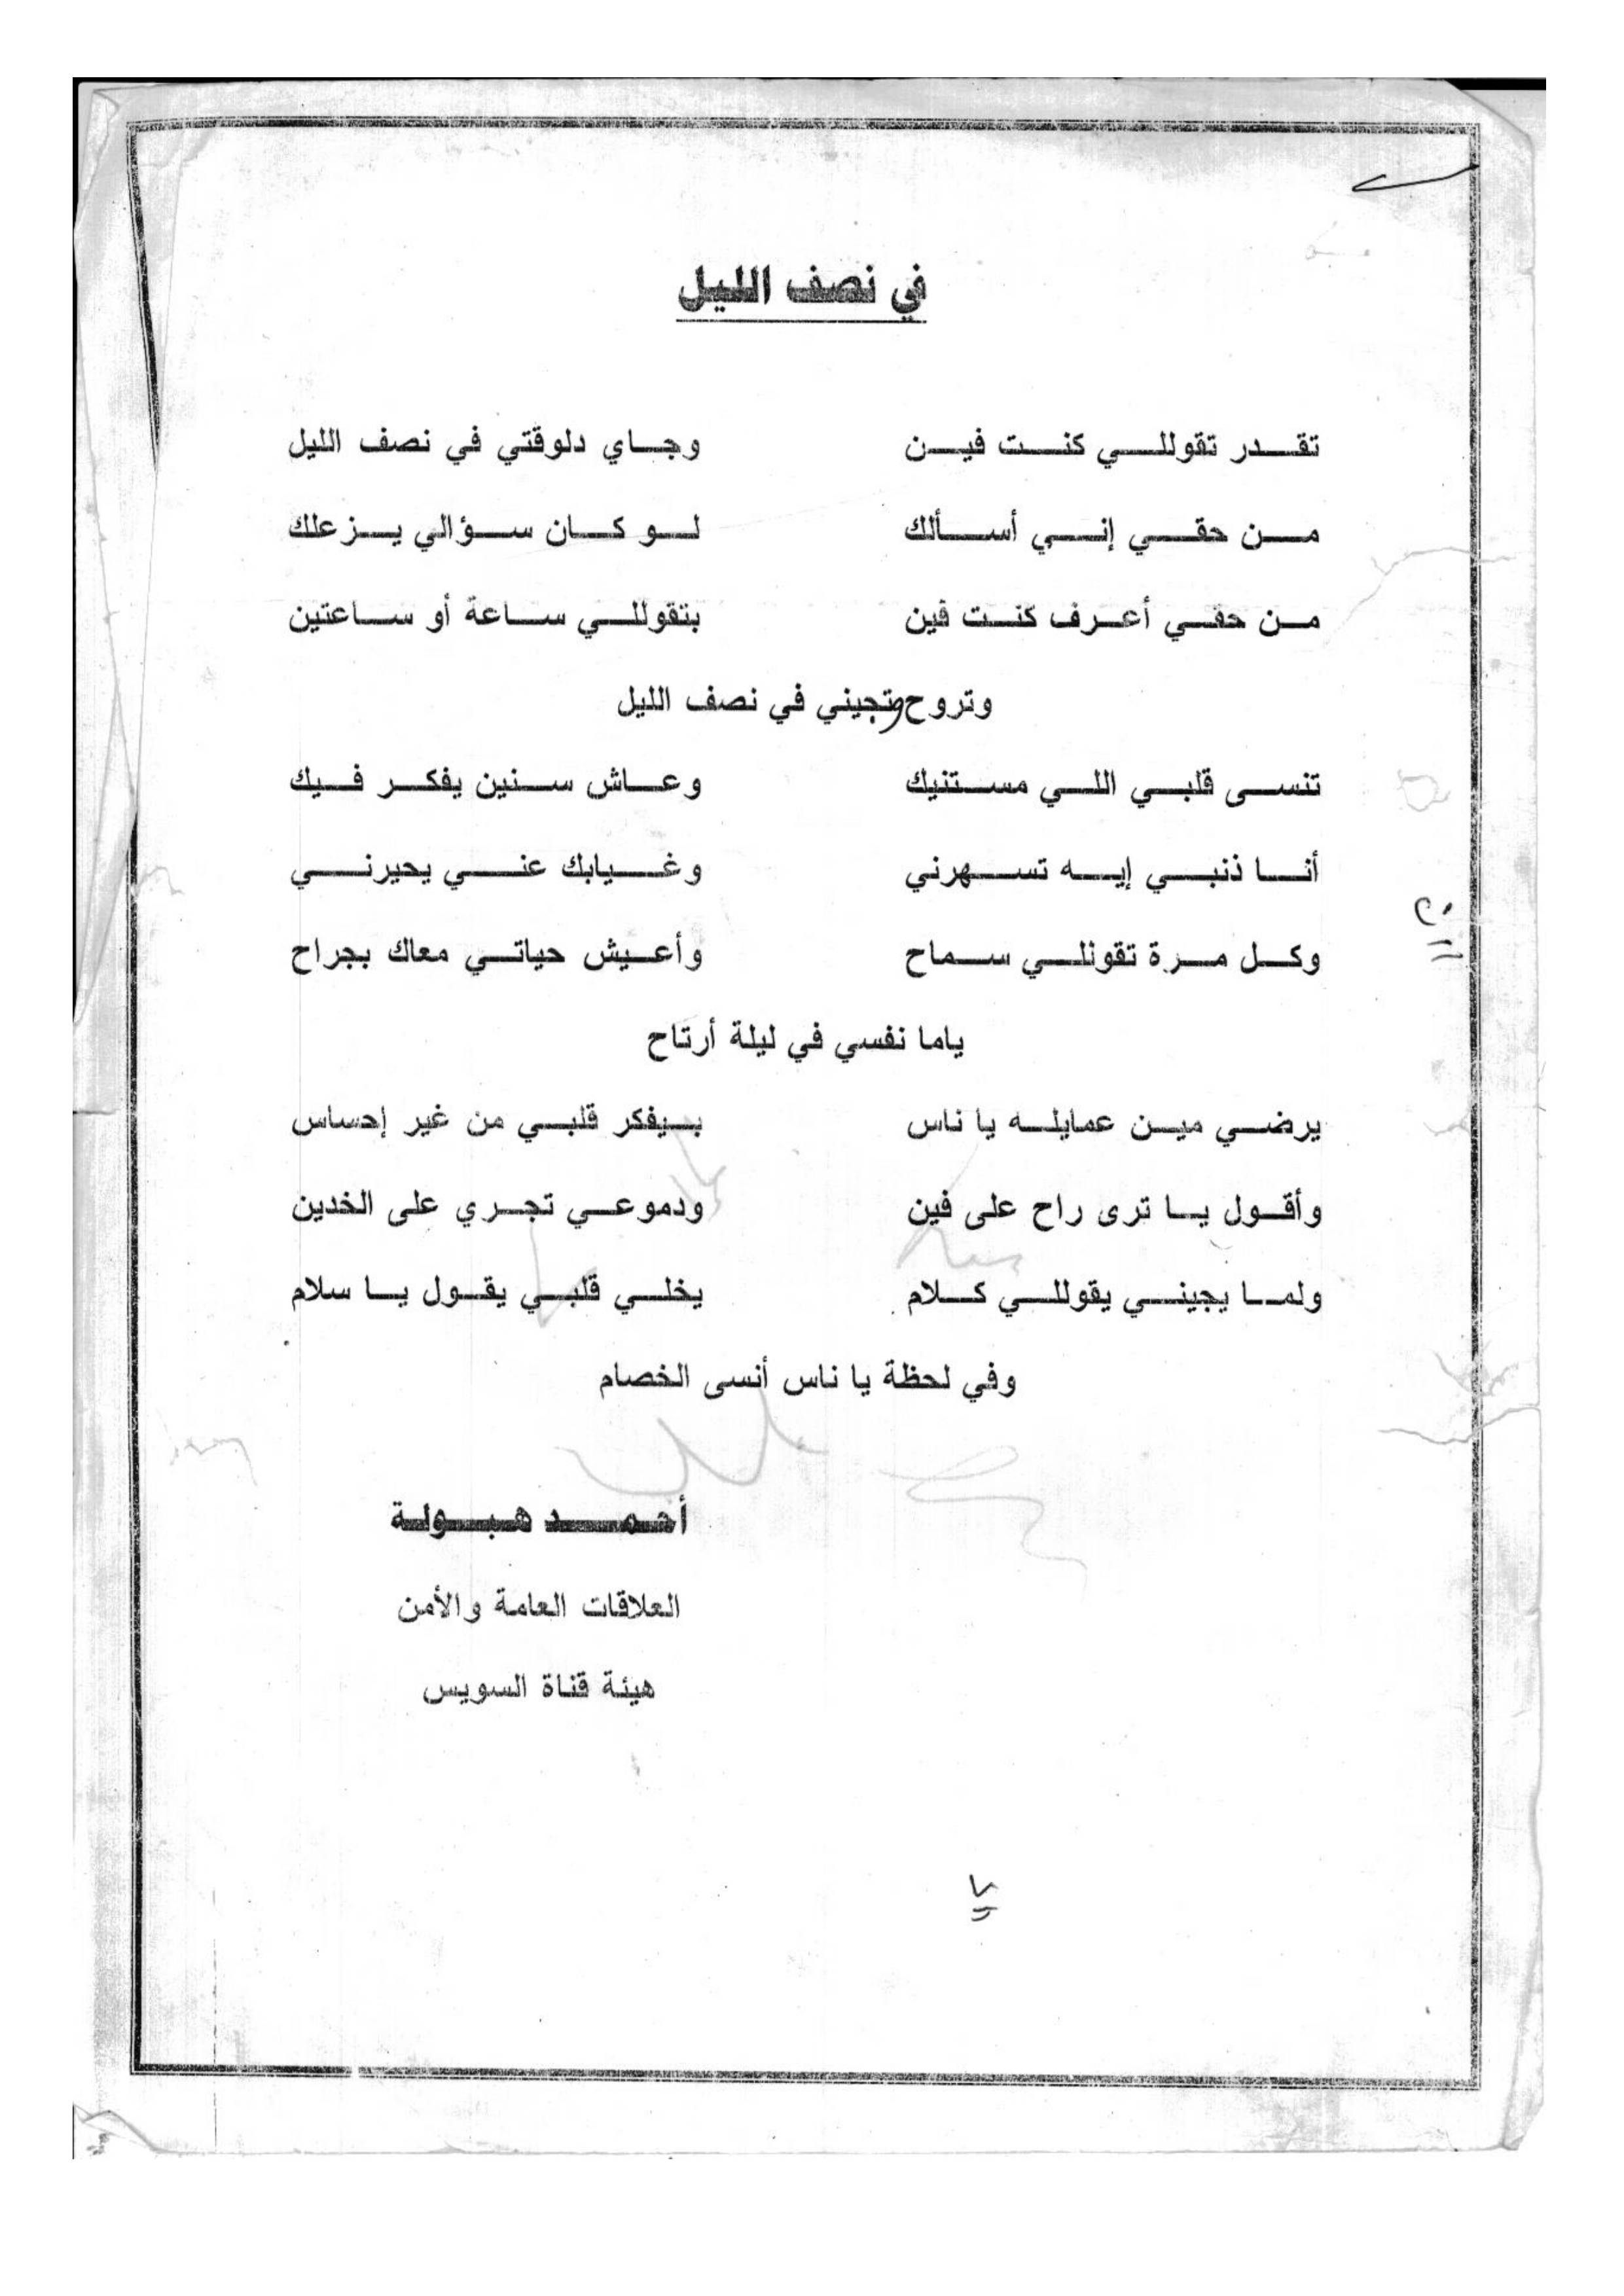 في نصف الليل
تقدر تقوللي كنت فين وجاي دلوقتي في نصف الليل
من حقي إني أسألك لو كان سؤالي يزعلك
من حقي أعرف كنت فين بتقوللي ساعة أو ساعتين
وتروح وتجيني في نصف الليل
تنسى قلبي اللي مستنيك وعاش سنين يفكر فيك
أنا ذنبي إيه تسهرني وغيابك عني يحيرني
وكل مرة تقوللي سماح وأعيش حياتي معاك بجراح
ياما نفسي في ليلة أرتاح
يرضي مين عمايله يا ناس بيفكر قلبي من غير إحساس
وأقول يا ترى راح على فين ودموعي تجري على الخدين
ولما يجيني يقوللي كلام يخلي قلبي يقول يا سلام
وفي لحظة يا ناس أنسى الخصام
أحمد هبولة
العلاقات العامة والأمن
هيئة قناة السويس